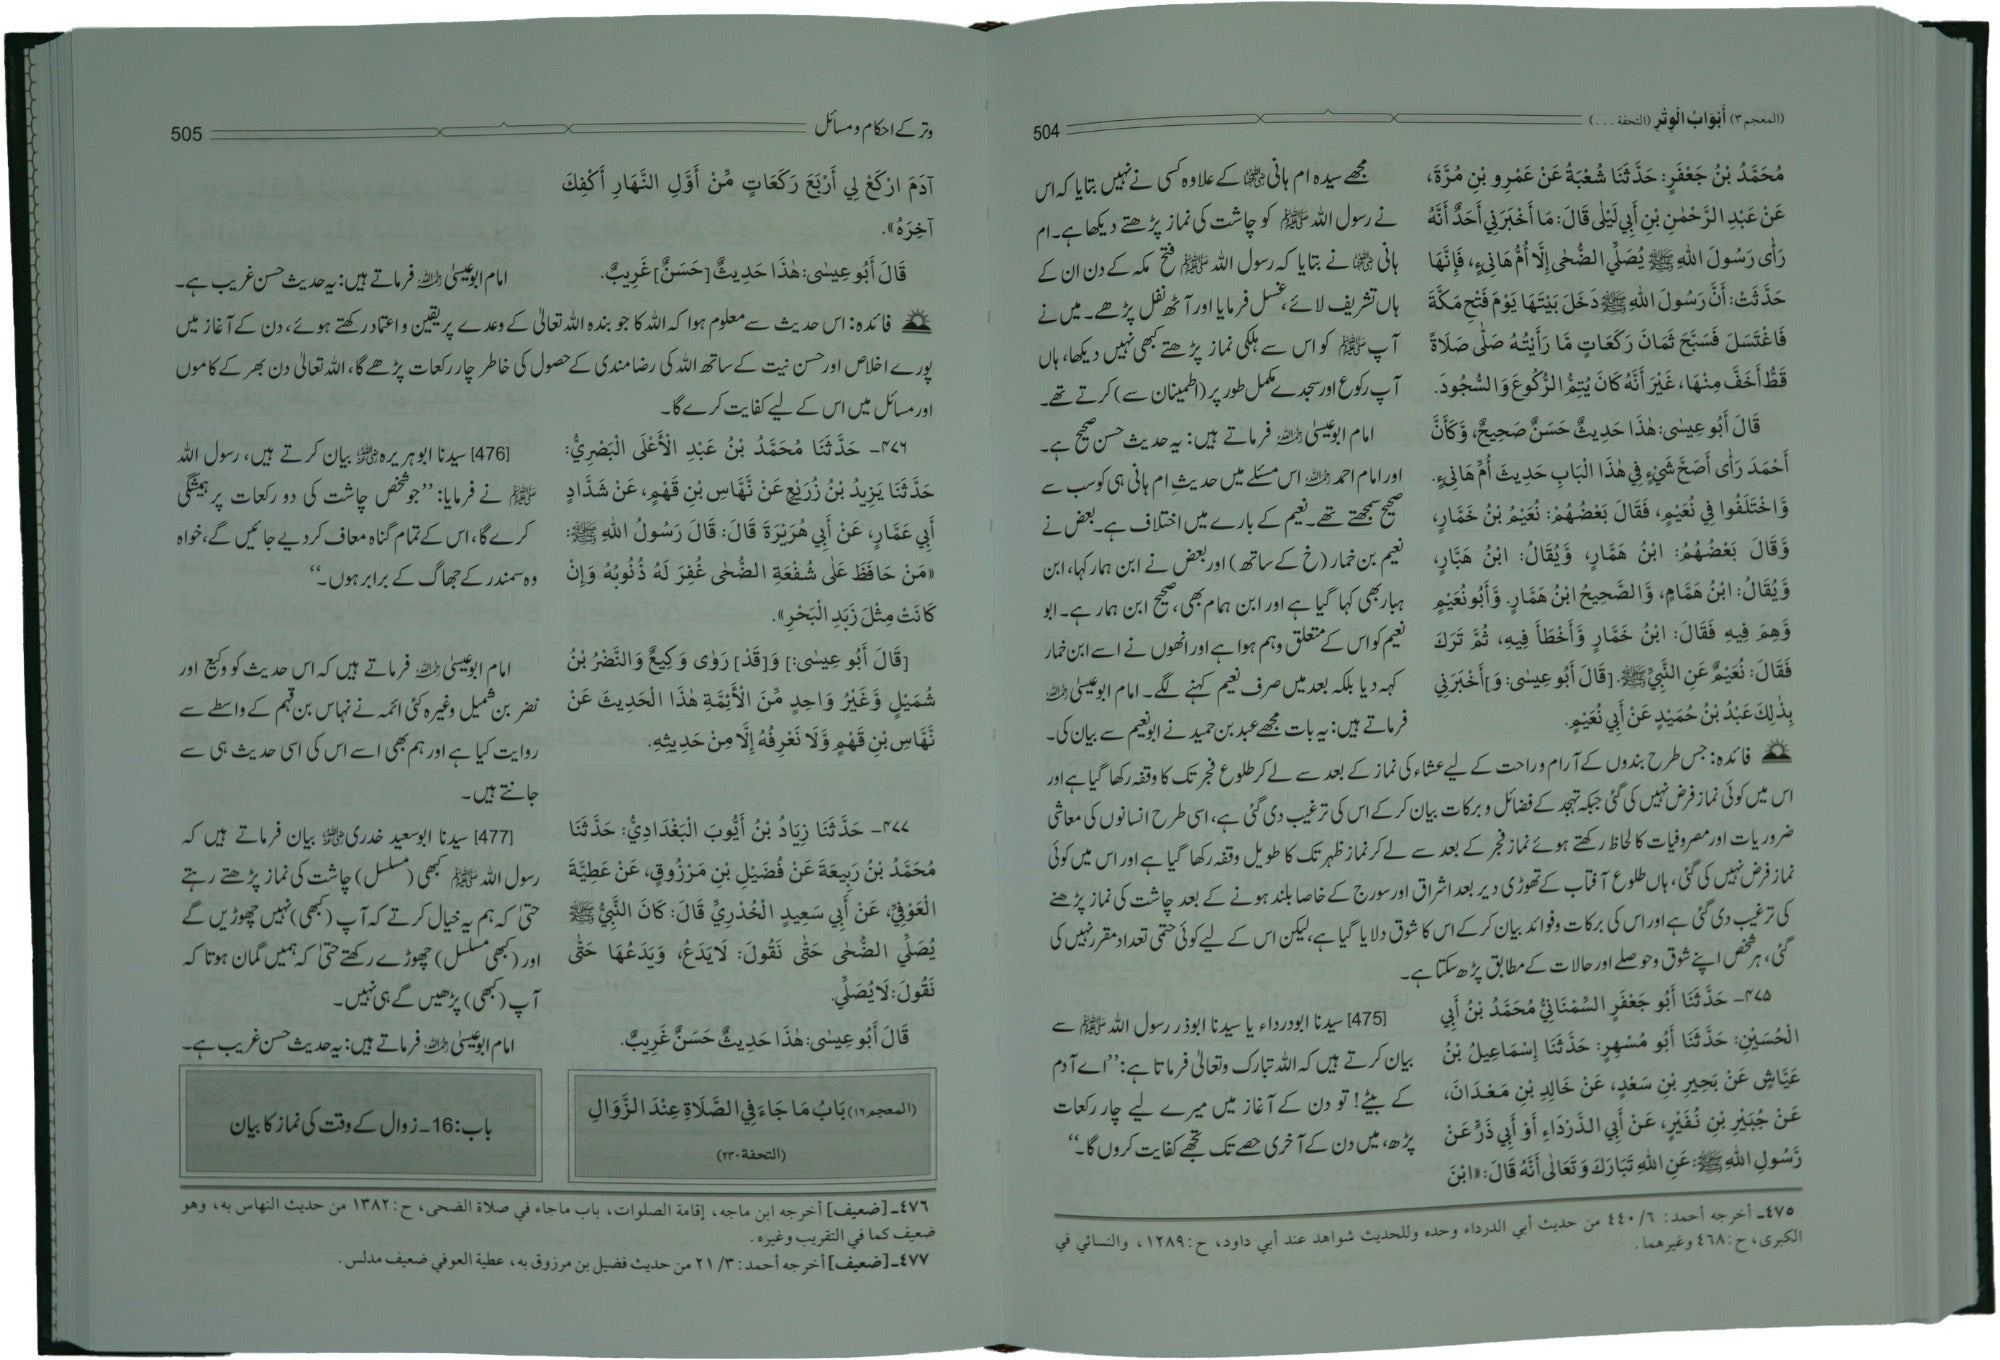 (المعجم ٣) أَبْوَابُ الْوِتْرِ (التحفة . . .)
504
مُحَمَّدُ بْنُ جَعْفَرٍ: حَدَّثَنَا شُعْبَةُ عَنْ عَمْرِو بْنِ مُرَّةَ،
عَنْ عَبْدِ الرَّحْمٰنِ بْنِ أَبِي لَيْلٰى قَالَ: مَا أَخْبَرَنِي أَحَدٌ أَنَّهُ
رَأَى رَسُولَ اللهِ ﷺ يُصَلِّي الضُّحٰى إِلَّا أُمُّ هَانِيءٍ، فَإِنَّهَا
حَدَّثَتْ: أَنَّ رَسُولَ اللهِ ﷺ دَخَلَ بَيْتَهَا يَوْمَ فَتْحِ مَكَّةَ
فَاغْتَسَلَ فَسَبَّحَ ثَمَانَ رَكَعَاتٍ مَّا رَأَيْتُهُ صَلَّى صَلَاةً
قَطُّ أَخَفَّ مِنْهَا، غَيْرَ أَنَّهُ كَانَ يُتِمُّ الرُّكُوعَ وَالسُّجُودَ.
قَالَ أَبُو عِيسٰى: هٰذَا حَدِيثٌ حَسَنٌ صَحِيحٌ، وَّكَأَنَّ
أَحْمَدَ رَأٰى أَصَحَّ شَيْءٍ فِي هٰذَا الْبَابِ حَدِيثَ أُمِّ هَانِيءٍ.
وَّاخْتَلَفُوا فِي نُعَيْمٍ، فَقَالَ بَعْضُهُمْ: نُعَيْمُ بْنُ خَمَّارٍ،
وَّقَالَ بَعْضُهُمُ: ابْنُ هَمَّارٍ، وَّيُقَالُ: ابْنُ هَبَّارٍ،
وَّيُقَالُ: ابْنُ هَمَّامٍ، وَّالصَّحِيحُ ابْنُ هَمَّارٍ. وَّأَبُو نُعَيْمٍ
وَّهِمَ فِيهِ فَقَالَ: ابْنُ خَمَّارٍ وَّأَخْطَأَ فِيهِ، ثُمَّ تَرَكَ
فَقَالَ: نُعَيْمٌ عَنِ النَّبِيِّ ﷺ. [قَالَ أَبُو عِيسٰى: وَ]أَخْبَرَنِي
بِذٰلِكَ عَبْدُ بْنُ حُمَيْدٍ عَنْ أَبِي نُعَيْمٍ.
مجھے سیدہ ام ہانی ؓ کے علاوہ کسی نے نہیں بتایا کہ اس
نے رسول اللہ ﷺ کو چاشت کی نماز پڑھتے دیکھا ہے۔ ام
ہانی ؓ نے بتایا کہ رسول اللہ ﷺ فتح مکہ کے دن ان کے
ہاں تشریف لائے، غسل فرمایا اور آٹھ نفل پڑھے۔ میں نے
آپ ﷺ کو اس سے ہلکی نماز پڑھتے کبھی نہیں دیکھا، ہاں
آپ رکوع اور سجدے مکمل طور پر (اطمینان سے) کرتے تھے۔
امام ابوعیسیٰ ؒ فرماتے ہیں: یہ حدیث حسن صحیح ہے۔
اور امام احمد ؒ اس مسئلے میں حدیثِ ام ہانی ہی کو سب سے
صحیح سمجھتے تھے۔ نعیم کے بارے میں اختلاف ہے۔ بعض نے
نعیم بن خمار (خ کے ساتھ) اور بعض نے ابن ہمار کہا، ابن
ہبار بھی کہا گیا ہے اور ابن ہمام بھی، صحیح ابن ہمار ہے۔ ابو
نعیم کو اس کے متعلق وہم ہوا ہے اور انھوں نے اسے ابن خمار
کہہ دیا بلکہ بعد میں صرف نعیم کہنے لگے۔ امام ابوعیسیٰ ؒ
فرماتے ہیں: یہ بات مجھے عبد بن حمید نے ابونعیم سے بیان کی۔
فائدہ: جس طرح بندوں کے آرام و راحت کے لیے عشاء کی نماز کے بعد سے لے کر طلوع فجر تک کا وقفہ رکھا گیا ہے اور
اس میں کوئی نماز فرض نہیں کی گئی جبکہ تہجد کے فضائل و برکات بیان کر کے اس کی ترغیب دی گئی ہے، اسی طرح انسانوں کی معاشی
ضروریات اور مصروفیات کا لحاظ رکھتے ہوئے نماز فجر کے بعد سے لے کر نماز ظہر تک کا طویل وقفہ رکھا گیا ہے اور اس میں کوئی
نماز فرض نہیں کی گئی، ہاں طلوع آفتاب کے تھوڑی دیر بعد اشراق اور سورج کے خاصا بلند ہونے کے بعد چاشت کی نماز پڑھنے
کی ترغیب دی گئی ہے اور اس کی برکات و فوائد بیان کر کے اس کا شوق دلایا گیا ہے، لیکن اس کے لیے کوئی حتمی تعداد مقرر نہیں کی
گئی، ہر شخص اپنے شوق و حوصلے اور حالات کے مطابق پڑھ سکتا ہے۔
٤٧٥- حَدَّثَنَا أَبُو جَعْفَرٍ السِّمْنَانِيُّ مُحَمَّدُ بْنُ أَبِي
الْحُسَيْنِ: حَدَّثَنَا أَبُو مُسْهِرٍ: حَدَّثَنَا إِسْمَاعِيلُ بْنُ
عَيَّاشٍ عَنْ بَحِيرِ بْنِ سَعْدٍ، عَنْ خَالِدِ بْنِ مَعْدَانَ،
عَنْ جُبَيْرِ بْنِ نُفَيْرٍ، عَنْ أَبِي الدَّرْدَاءِ أَوْ أَبِي ذَرٍّ عَنْ
رَّسُولِ اللهِ ﷺ: عَنِ اللهِ تَبَارَكَ وَتَعَالٰى أَنَّهُ قَالَ: «ابْنَ
[475] سیدنا ابودرداء یا سیدنا ابوذر رسول اللہ ﷺ سے
بیان کرتے ہیں کہ اللہ تبارک وتعالیٰ فرماتا ہے: ’’اے آدم
کے بیٹے! تو دن کے آغاز میں میرے لیے چار رکعات
پڑھ، میں دن کے آخری حصے تک تجھے کفایت کروں گا۔‘‘
٤٧٥- أخرجه أحمد: ٦/ ٤٤٠ من حديث أبي الدرداء وحده وللحديث شواهد عند أبي داود، ح: ١٢٨٩، والنسائي في
الكبرى، ح: ٤٦٨ وغيرهما.
وتر کے احکام و مسائل
505
آدَمَ ارْكَعْ لِي أَرْبَعَ رَكَعَاتٍ مِّنْ أَوَّلِ النَّهَارِ أَكْفِكَ
آخِرَهُ».
قَالَ أَبُو عِيسٰى: هٰذَا حَدِيثٌ [حَسَنٌ] غَرِيبٌ.
امام ابوعیسیٰ ؒ فرماتے ہیں: یہ حدیث حسن غریب ہے۔
فائدہ: اس حدیث سے معلوم ہوا کہ اللہ کا جو بندہ اللہ تعالیٰ کے وعدے پر یقین و اعتماد رکھتے ہوئے، دن کے آغاز میں
پورے اخلاص اور حسن نیت کے ساتھ اللہ کی رضامندی کے حصول کی خاطر چار رکعات پڑھے گا، اللہ تعالیٰ دن بھر کے کاموں
اور مسائل میں اس کے لیے کفایت کرے گا۔
٤٧٦- حَدَّثَنَا مُحَمَّدُ بْنُ عَبْدِ الْأَعْلَى الْبَصْرِيُّ:
حَدَّثَنَا يَزِيدُ بْنُ زُرَيْعٍ عَنْ نَّهَّاسِ بْنِ قَهْمٍ، عَنْ شَدَّادٍ
أَبِي عَمَّارٍ، عَنْ أَبِي هُرَيْرَةَ قَالَ: قَالَ رَسُولُ اللهِ ﷺ:
«مَنْ حَافَظَ عَلَى شُفْعَةِ الضُّحٰى غُفِرَ لَهُ ذُنُوبُهُ وَإِنْ
كَانَتْ مِثْلَ زَبَدِ الْبَحْرِ».
[قَالَ أَبُو عِيسٰى:] وَ[قَدْ] رَوٰى وَكِيعٌ وَالنَّضْرُ بْنُ
شُمَيْلٍ وَّغَيْرُ وَاحِدٍ مِّنَ الْأَئِمَّةِ هٰذَا الْحَدِيثَ عَنْ
نَّهَّاسِ بْنِ قَهْمٍ وَّلَا نَعْرِفُهُ إِلَّا مِنْ حَدِيثِهِ.
[476] سیدنا ابوہریرہ ؓ بیان کرتے ہیں، رسول اللہ
ﷺ نے فرمایا: ’’جو شخص چاشت کی دو رکعات پر ہمیشگی
کرے گا، اس کے تمام گناہ معاف کر دیے جائیں گے، خواہ
وہ سمندر کے جھاگ کے برابر ہوں۔‘‘
امام ابوعیسیٰ ؒ فرماتے ہیں کہ اس حدیث کو وکیع اور
نضر بن شمیل وغیرہ کئی ائمہ نے نہاس بن قہم کے واسطے سے
روایت کیا ہے اور ہم بھی اسے اس کی اسی حدیث ہی سے
جانتے ہیں۔
٤٧٧- حَدَّثَنَا زِيَادُ بْنُ أَيُّوبَ الْبَغْدَادِيُّ: حَدَّثَنَا
مُحَمَّدُ بْنُ رَبِيعَةَ عَنْ فُضَيْلِ بْنِ مَرْزُوقٍ، عَنْ عَطِيَّةَ
الْعَوْفِيِّ، عَنْ أَبِي سَعِيدٍ الْخُدْرِيِّ قَالَ: كَانَ النَّبِيُّ ﷺ
يُصَلِّي الضُّحٰى حَتّٰى نَقُولَ: لَا يَدَعُ، وَيَدَعُهَا حَتّٰى
نَقُولَ: لَا يُصَلِّي.
قَالَ أَبُو عِيسٰى: هٰذَا حَدِيثٌ حَسَنٌ غَرِيبٌ.
[477] سیدنا ابوسعید خدری ؓ بیان فرماتے ہیں کہ
رسول اللہ ﷺ کبھی (مسلسل) چاشت کی نماز پڑھتے رہتے
حتیٰ کہ ہم یہ خیال کرتے کہ آپ (کبھی) نہیں چھوڑیں گے
اور (کبھی مسلسل) چھوڑے رکھتے حتیٰ کہ ہمیں گمان ہوتا کہ
آپ (کبھی) پڑھیں گے ہی نہیں۔
امام ابوعیسیٰ ؒ فرماتے ہیں: یہ حدیث حسن غریب ہے۔
(المعجم ١٦) بَابُ مَا جَاءَ فِي الصَّلَاةِ عِنْدَ الزَّوَالِ
(التحفة ٢٣٠)
باب: 16- زوال کے وقت کی نماز کا بیان
٤٧٦- [ضعيف] أخرجه ابن ماجه، إقامة الصلوات، باب ماجاء في صلاة الضحى، ح: ١٣٨٢ من حديث النهاس به، وهو
ضعيف كما في التقريب وغيره.
٤٧٧- [ضعيف] أخرجه أحمد: ٣/ ٢١ من حديث فضيل بن مرزوق به، عطية العوفي ضعيف مدلس.